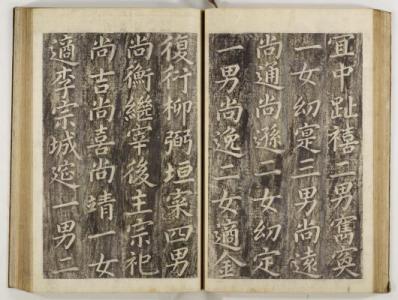 宜中趾禧二男寓寘
一女幼寔三男尚遠
尚通尚遜一女幼定
一男尚逸二女適金
復行柳弼垣寀四男
尚衡繼宰後主宗祀
尚吉尚喜尚靖一女
適李宗城筵一男二